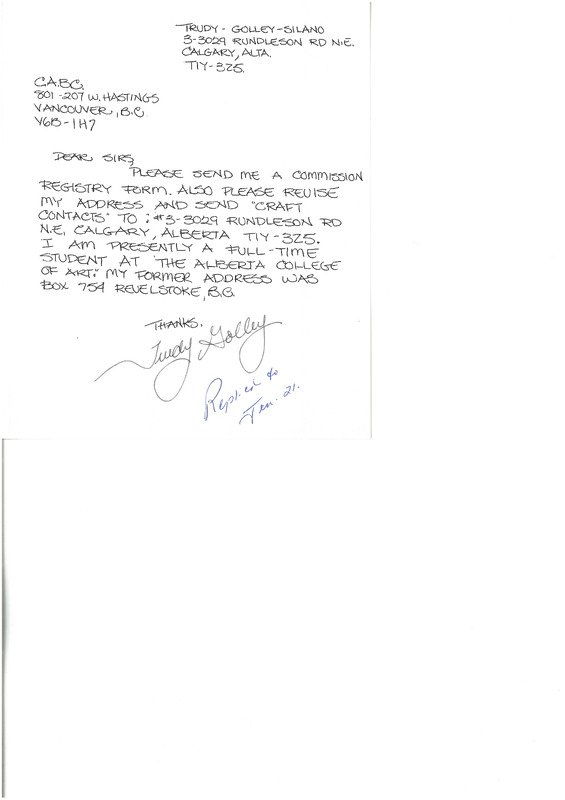 TRUDY - GOLLEY-SILANO
3-3029 RUNDLESON RD N.E.
CALGARY, ALTA.
T1Y-3Z5.
C.A.B.C.
801-207 W. HASTINGS
VANCOUVER, B.C.
V6B-1H7
DEAR SIRS,
PLEASE SEND ME A COMMISSION
REGISTRY FORM. ALSO PLEASE REVISE
MY ADDRESS AND SEND "CRAFT
CONTACTS" TO: #3-3029 RUNDLESON RD
N.E. CALGARY, ALBERTA T1Y-3Z5.
I AM PRESENTLY A FULL-TIME
STUDENT AT THE ALBERTA COLLEGE
OF ART. MY FORMER ADDRESS WAS
BOX 754 REVELSTOKE, B.C.
THANKS.
Trudy Golley
Replied to
Jan. 21.